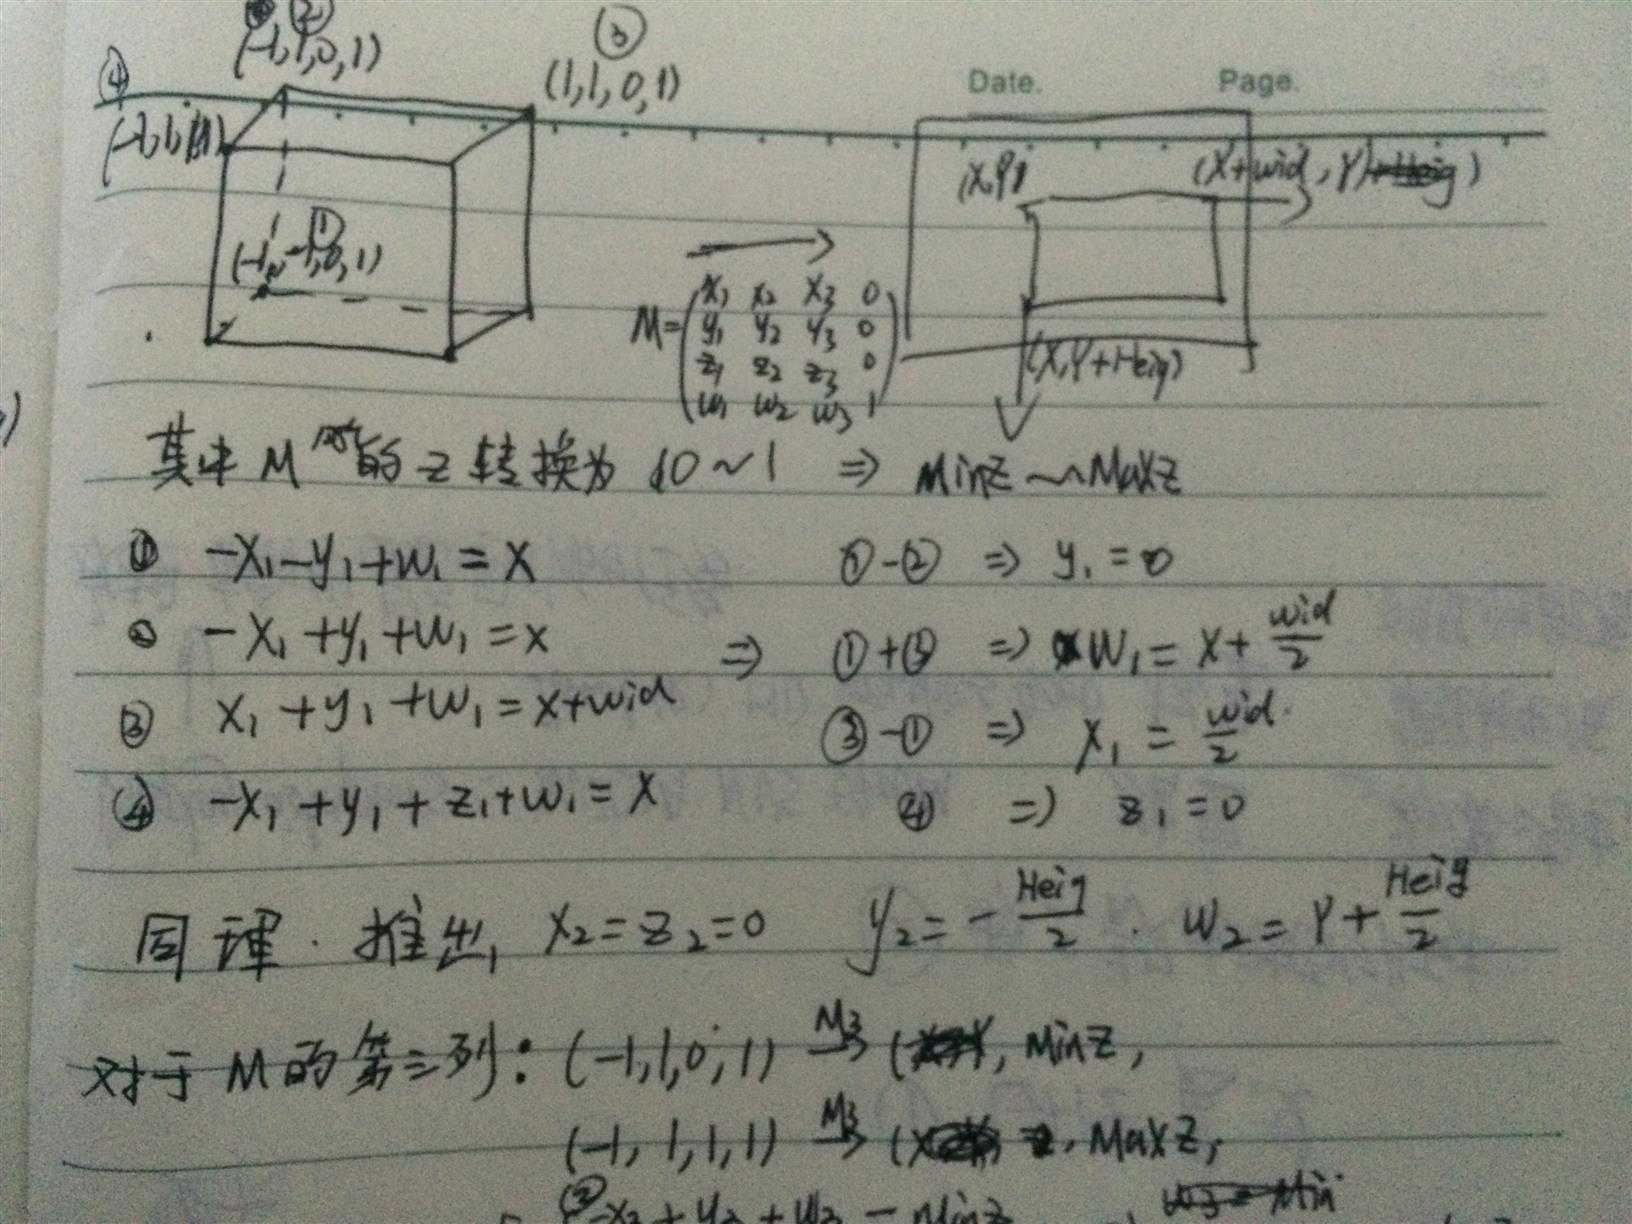 ② ③
(-1,1,0,1) (1,1,0,1) Date. Page.
④
(-1,1,1,1) (X,Y) (X+wid, Y)
①
(-1,-1,0,1)
M= (x₁ x₂ x₃ 0
y₁ y₂ y₃ 0
z₁ z₂ z₃ 0
w₁ w₂ w₃ 1)
(X,Y+Heig)
其中 M 的 z 转换为 0~1 ⇒ MinZ~MaxZ
① -x₁-y₁+w₁=X ①-② ⇒ y₁=0
② -x₁+y₁+w₁=X ⇒ ①+③ ⇒ w₁=X+wid/2
③ x₁+y₁+w₁=X+wid ③-① ⇒ x₁=wid/2
④ -x₁+y₁+z₁+w₁=X ④ ⇒ z₁=0
同理. 推出, x₂=z₂=0 y₂=-Heig/2. w₂=Y+Heig/2
对于 M 的第三列: (-1,1,0,1) M3→ ( , MinZ,
(-1,1,1,1) M3→ ( , MaxZ,
② -x₃+y₃+w₃=MinZ